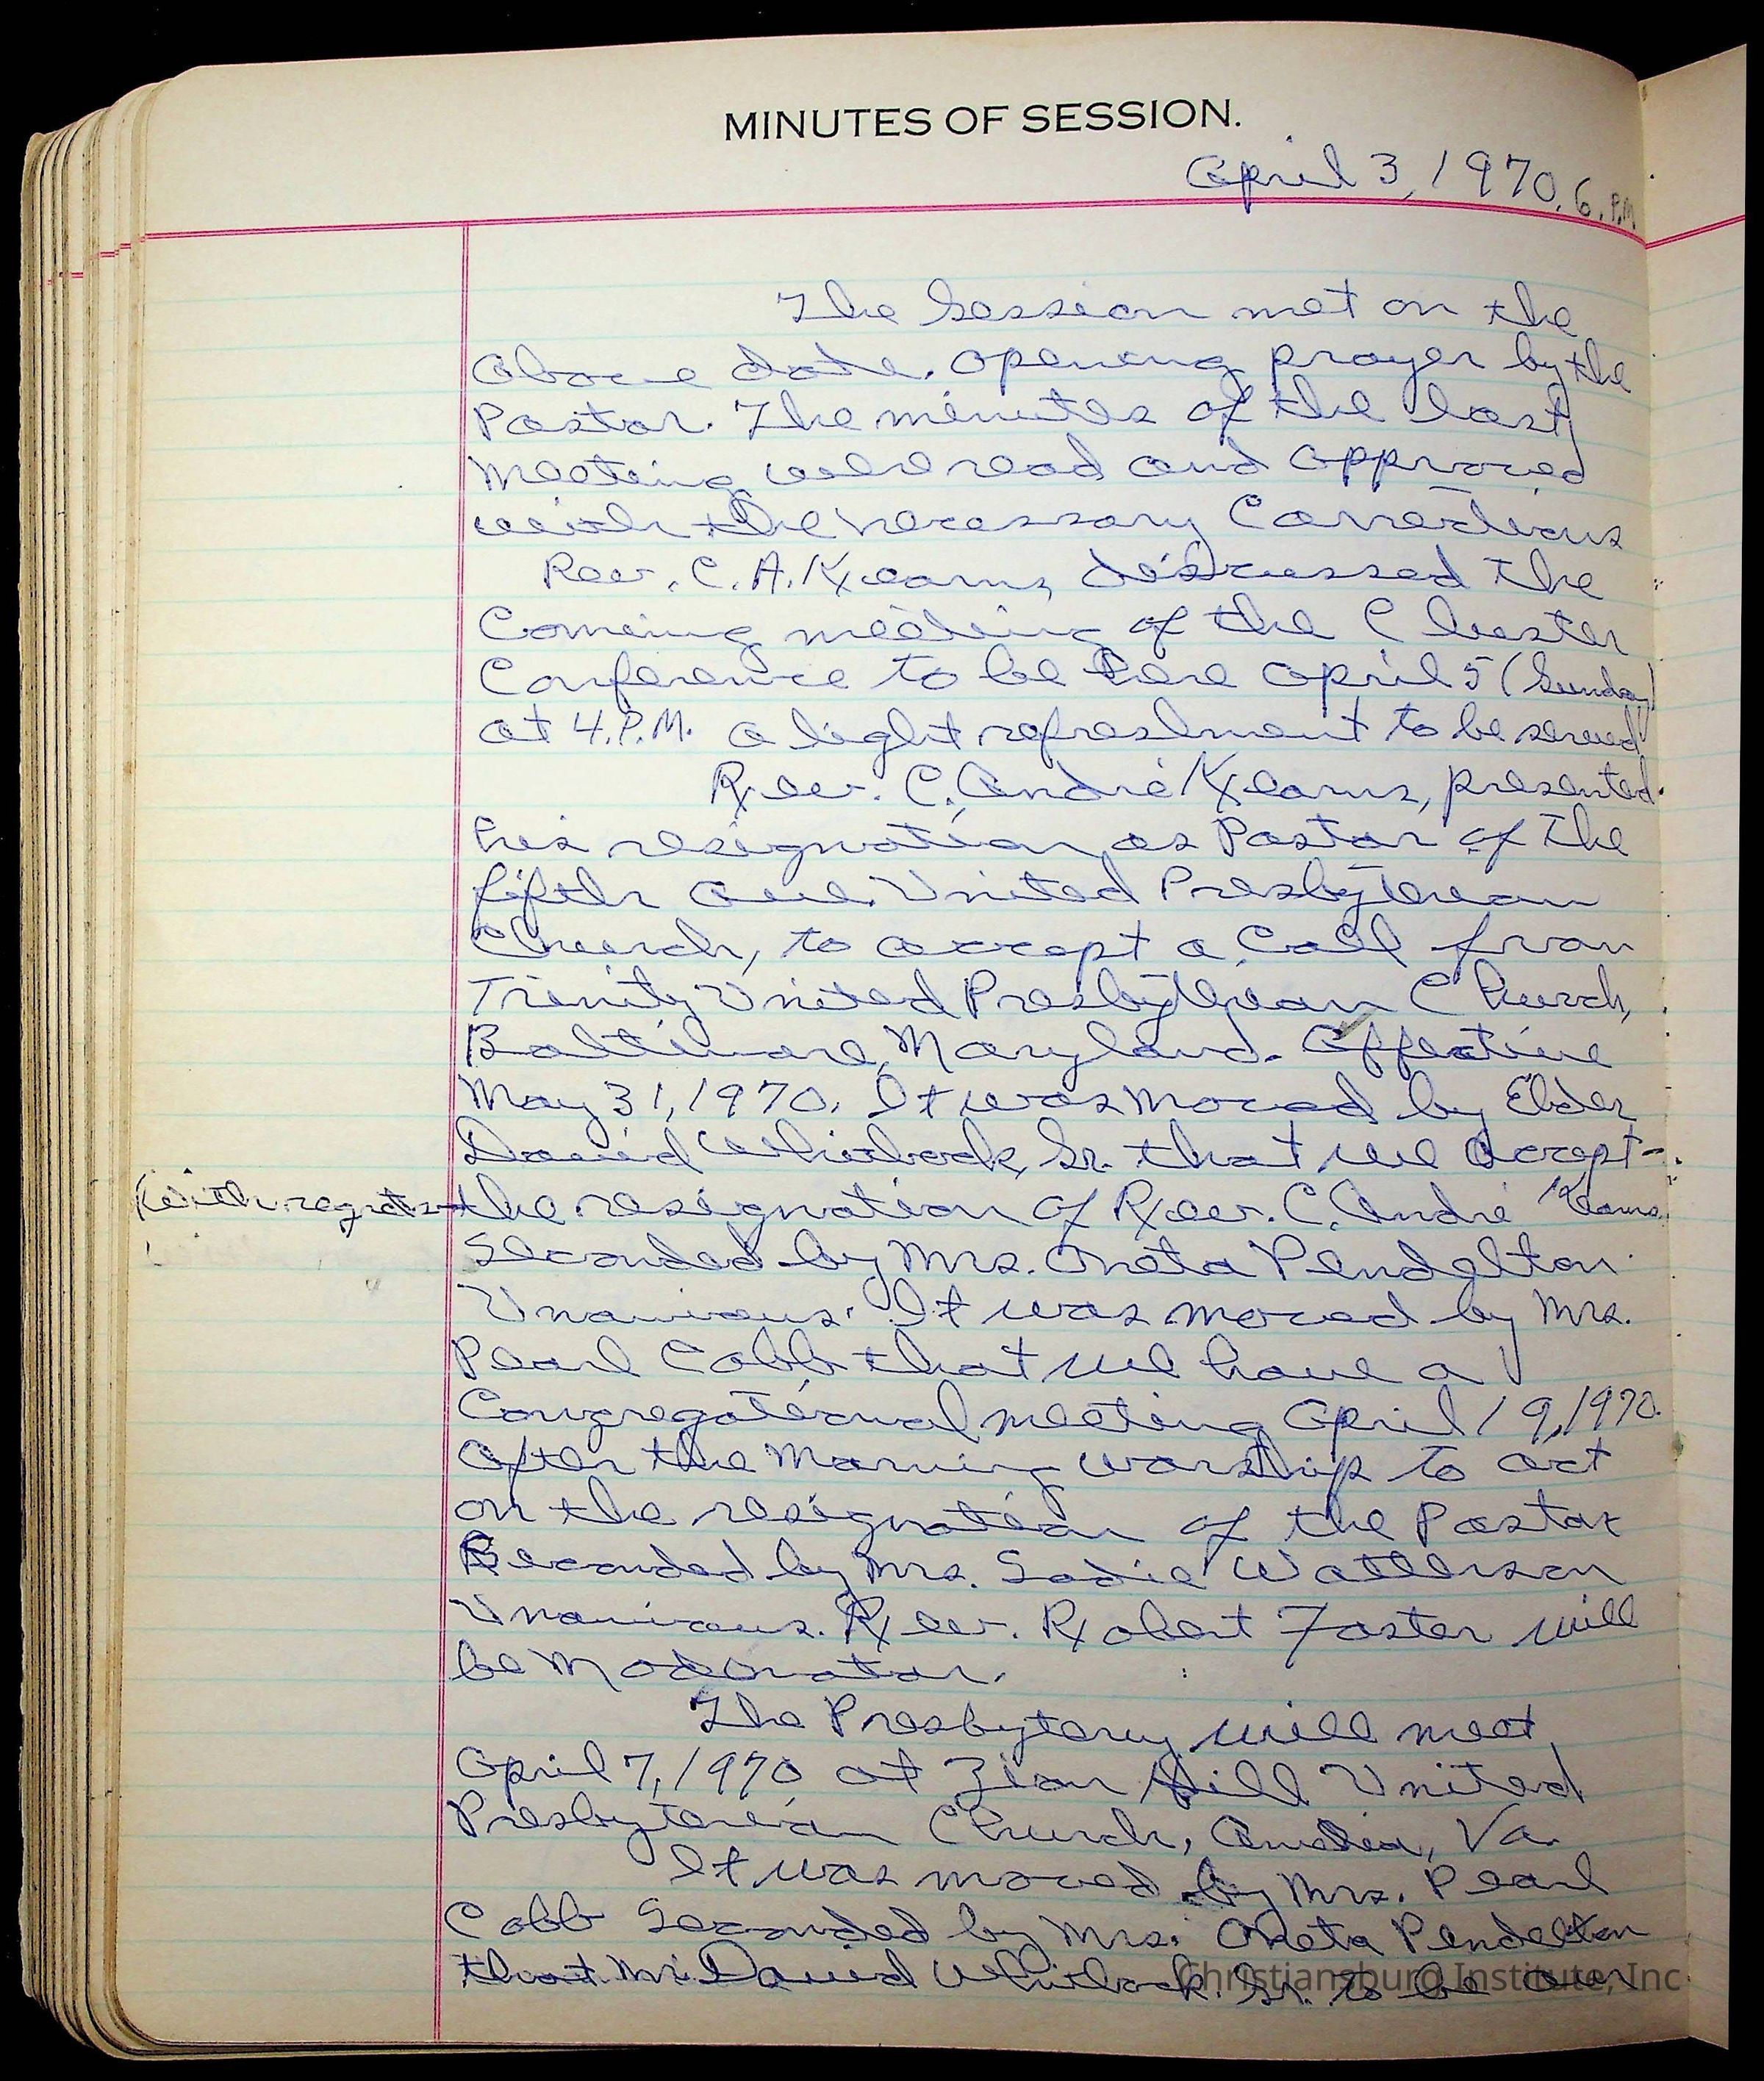 MINUTES OF SESSION.
April 3, 1970. 6. P.M
The Session met on the
above date. opening prayer by the
Pastor. The minutes of the last
meeting were read and approved
with the necessary Corrections
Rev. C. A. Kearns, discussed the
Coming meeting of the Cluster
Conference to be here April 5 (Sunday)
at 4. P.M. a light refreshment to be served
Rev. C. André Kearns, presented
his resignation as Pastor of The
fifth Ave. United Presbyterian
Church, to accept a Call from
Trinity United Presbyterian Church,
Baltimore, Maryland. Effective
May 31, 1970. It was moved by Elder
David Whitlock, Sr. that we accept
(with regrets) the resignation of Rev. C. André Kearns.
Seconded by Mrs. Oneta Pendelton
Unanious. It was moved by Mrs.
Pearl Cobb that we have a
Congregational meeting April 19, 1970.
after the Morning worship to act
on the resignation of the Pastor
Seconded by Mrs. Sadie Watterson
Unanious. Rev. Robert Foster will
be Moderator.
The Presbytery will meet
April 7, 1970 at Zion Hill United
Presbyterian Church, Amelia, Va.
It was moved by Mrs. Pearl
Cobb Seconded by Mrs. Oneta Pendelton
that Mr. David Whitlock. Sr. to be our
Christiansburg Institute, Inc